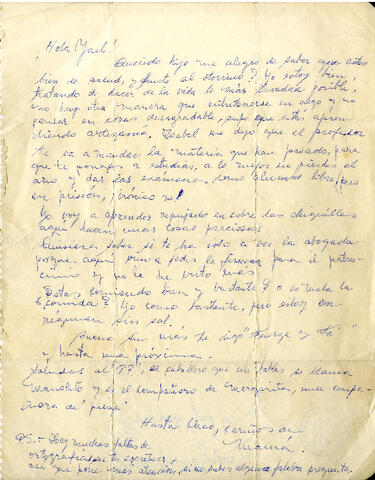 ¡Hola Yael!
Querido hijo me alegro de saber que estés
bien de salud, y fuiste al otorrino? Yo estoy bien,
tratando de hacer de la vida lo más livadad posible,
no hay otra manera que entretenerse en algo y no
pensar en cosas desagradable, supe que estás apren
diendo artezanía, Isabel me dijo que el profesor
te va a mandar la materia que han pasado, para
que te pongas a estudiar, a lo mejor no pierdes el
año y das los exámenes como alumno libre, pero
en prisión, ¡irónico no!
Yo voy a aprender repujado en cobre las chiquillas
aquí hacen unas cosas preciosas.
Quisiera saber si te ha ido a ver la abogada
porque aquí vino a pedir la firma para el patro-
cinio y no la he visto más.
Estás comiendo bien y bastante? o es mala la
comida? Yo como bastante, pero estoy en
régimen sin sal.
Bueno sin más te digo "Fuerza y Fé"
y hasta una próxima.
Saludos al el caballero que me hablas se llama
y es el compañero de Margarita, una compa-
ñera de pieza.
Hasta Chao, cariños de
Mamá.
P.S.- Hay muchas faltas de
ortografía en tu escritura,
así que pone más atención, si no sabes alguna palabra pregunta.